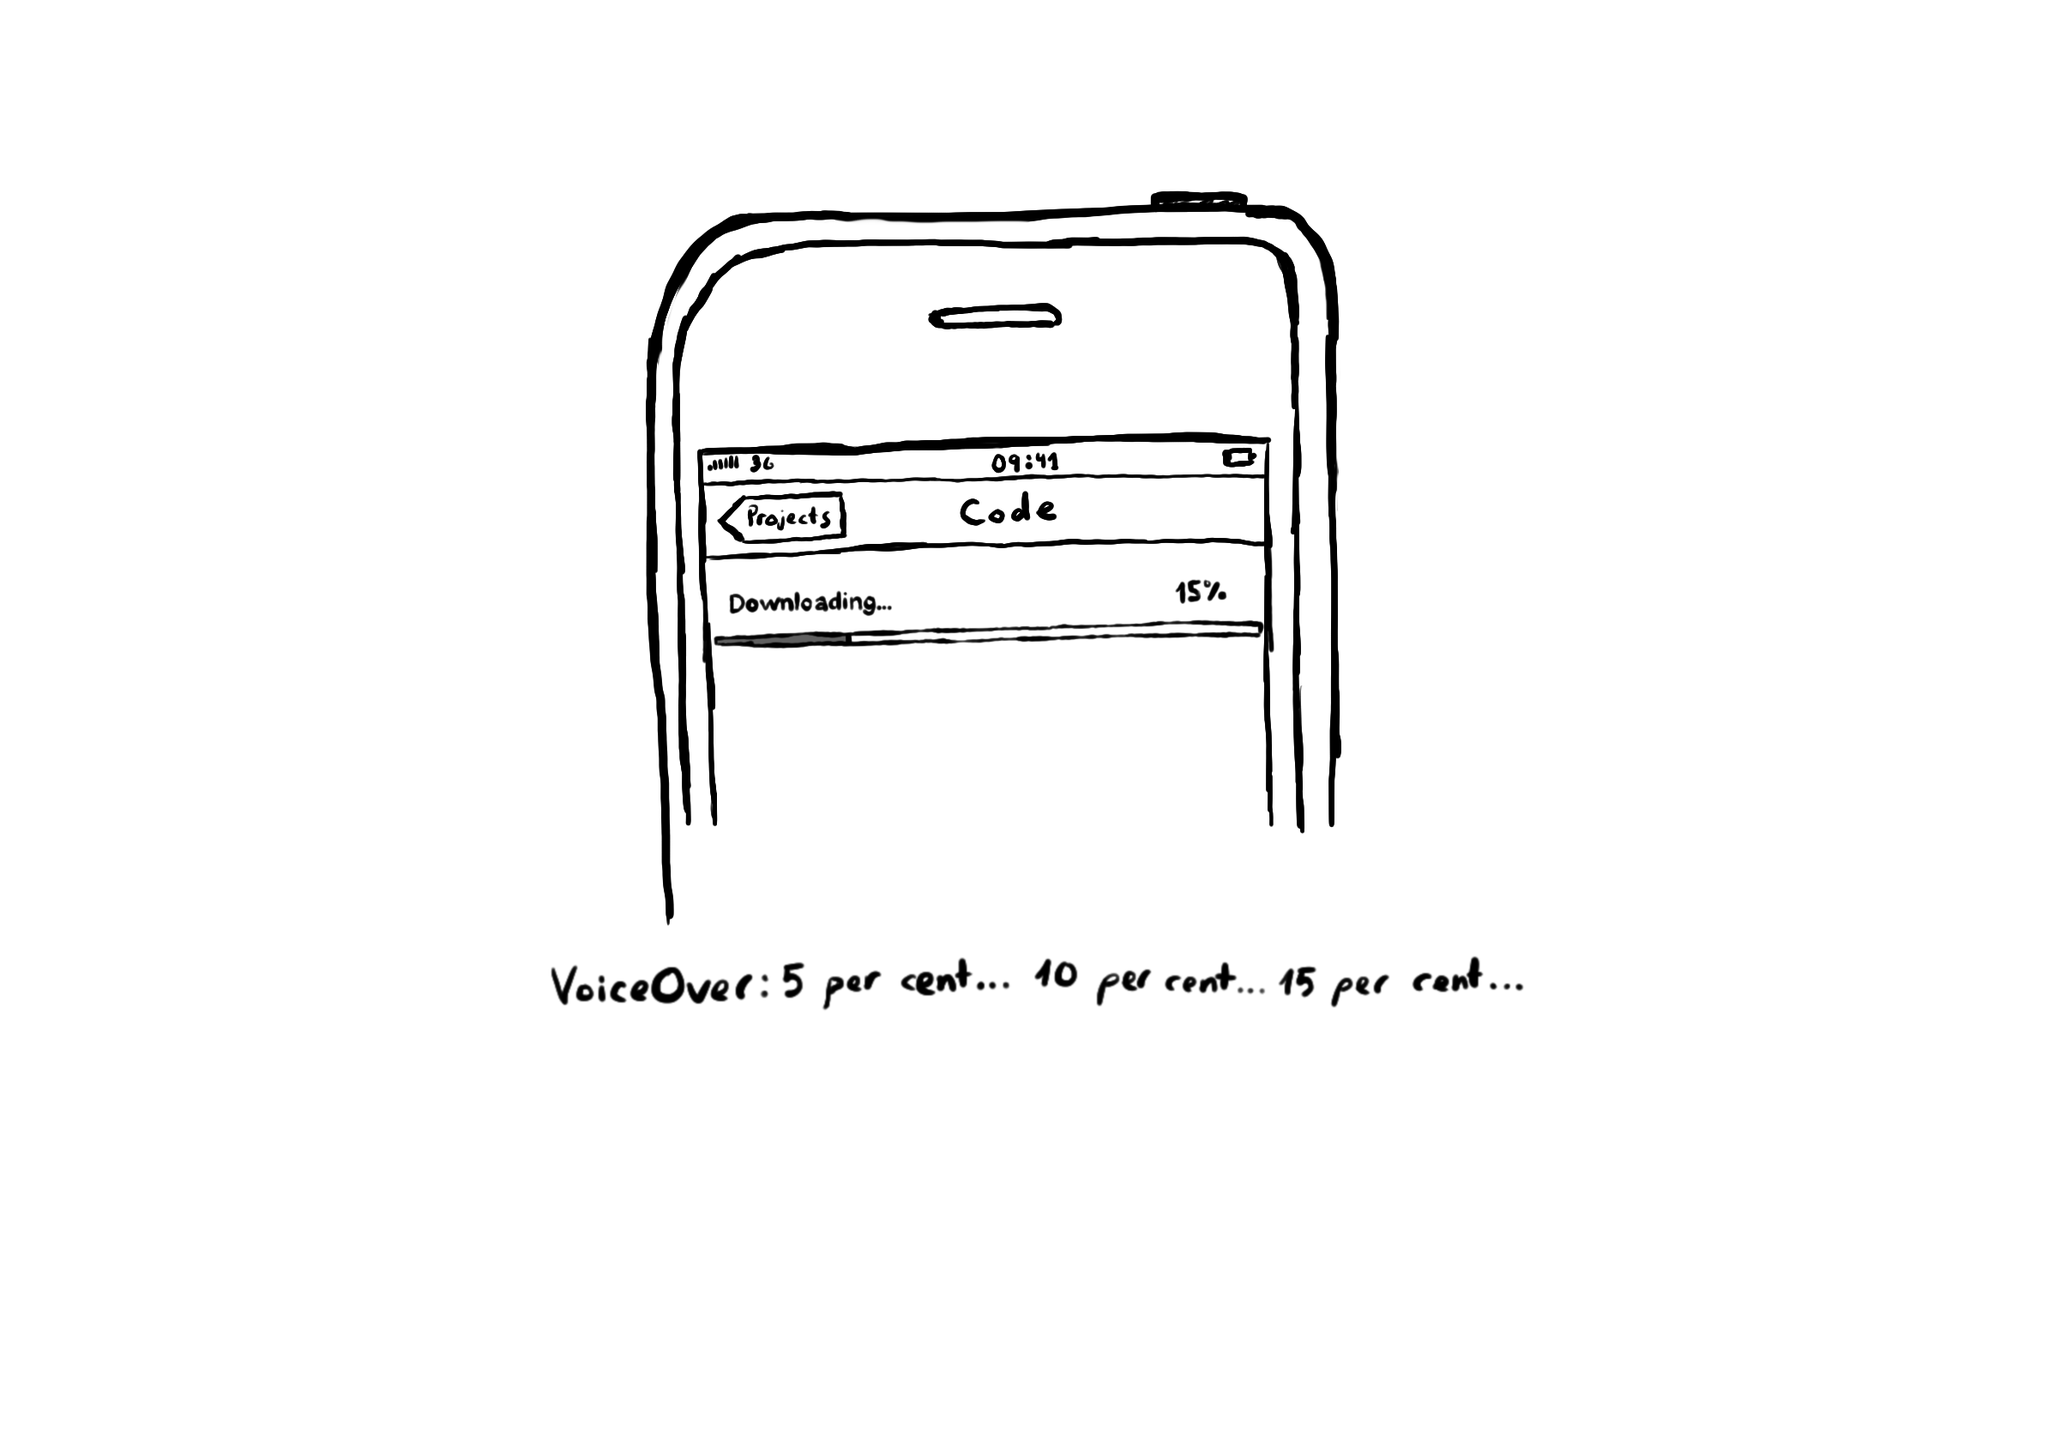 3G 09:41
Projects Code
Downloading... 15%
VoiceOver: 5 per cent... 10 per cent... 15 per cent...